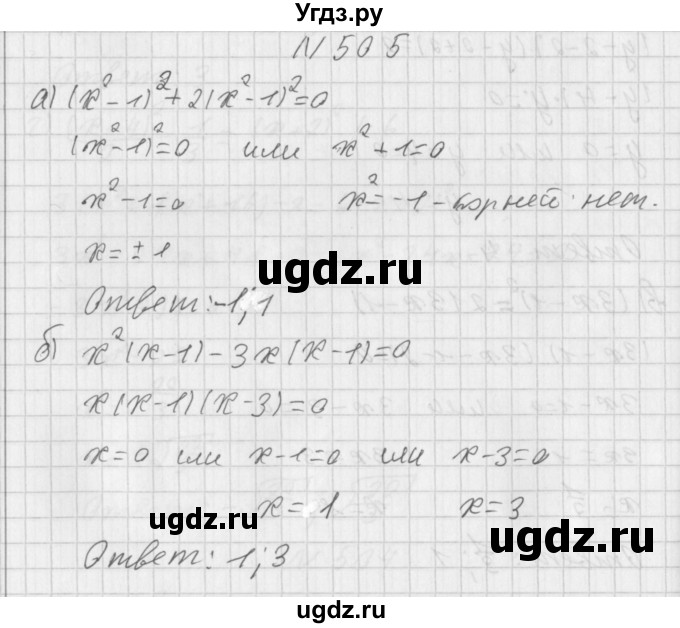 Угдз.ру
N 505
а) (x²-1)²+2(x²-1)²=0
(x²-1)²=0 или x²+1=0
x²-1=0 x²=-1 - корней нет.
x=±1
ugdz.ru
Ответ: -1; 1
б) x²(x-1)-3x(x-1)=0
x(x-1)(x-3)=0
x=0 или x-1=0 или x-3=0
x=1 x=3
ugdz.ru
ugdz.ru
Ответ: 1; 3
ugdz.ru